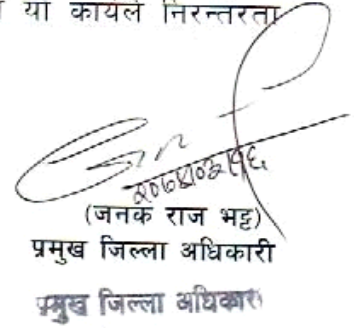 यो कार्यले निरन्तरता
(जनक राज भट्ट)
प्रमुख जिल्ला अधिकारी
प्रमुख जिल्ला अधिकारी